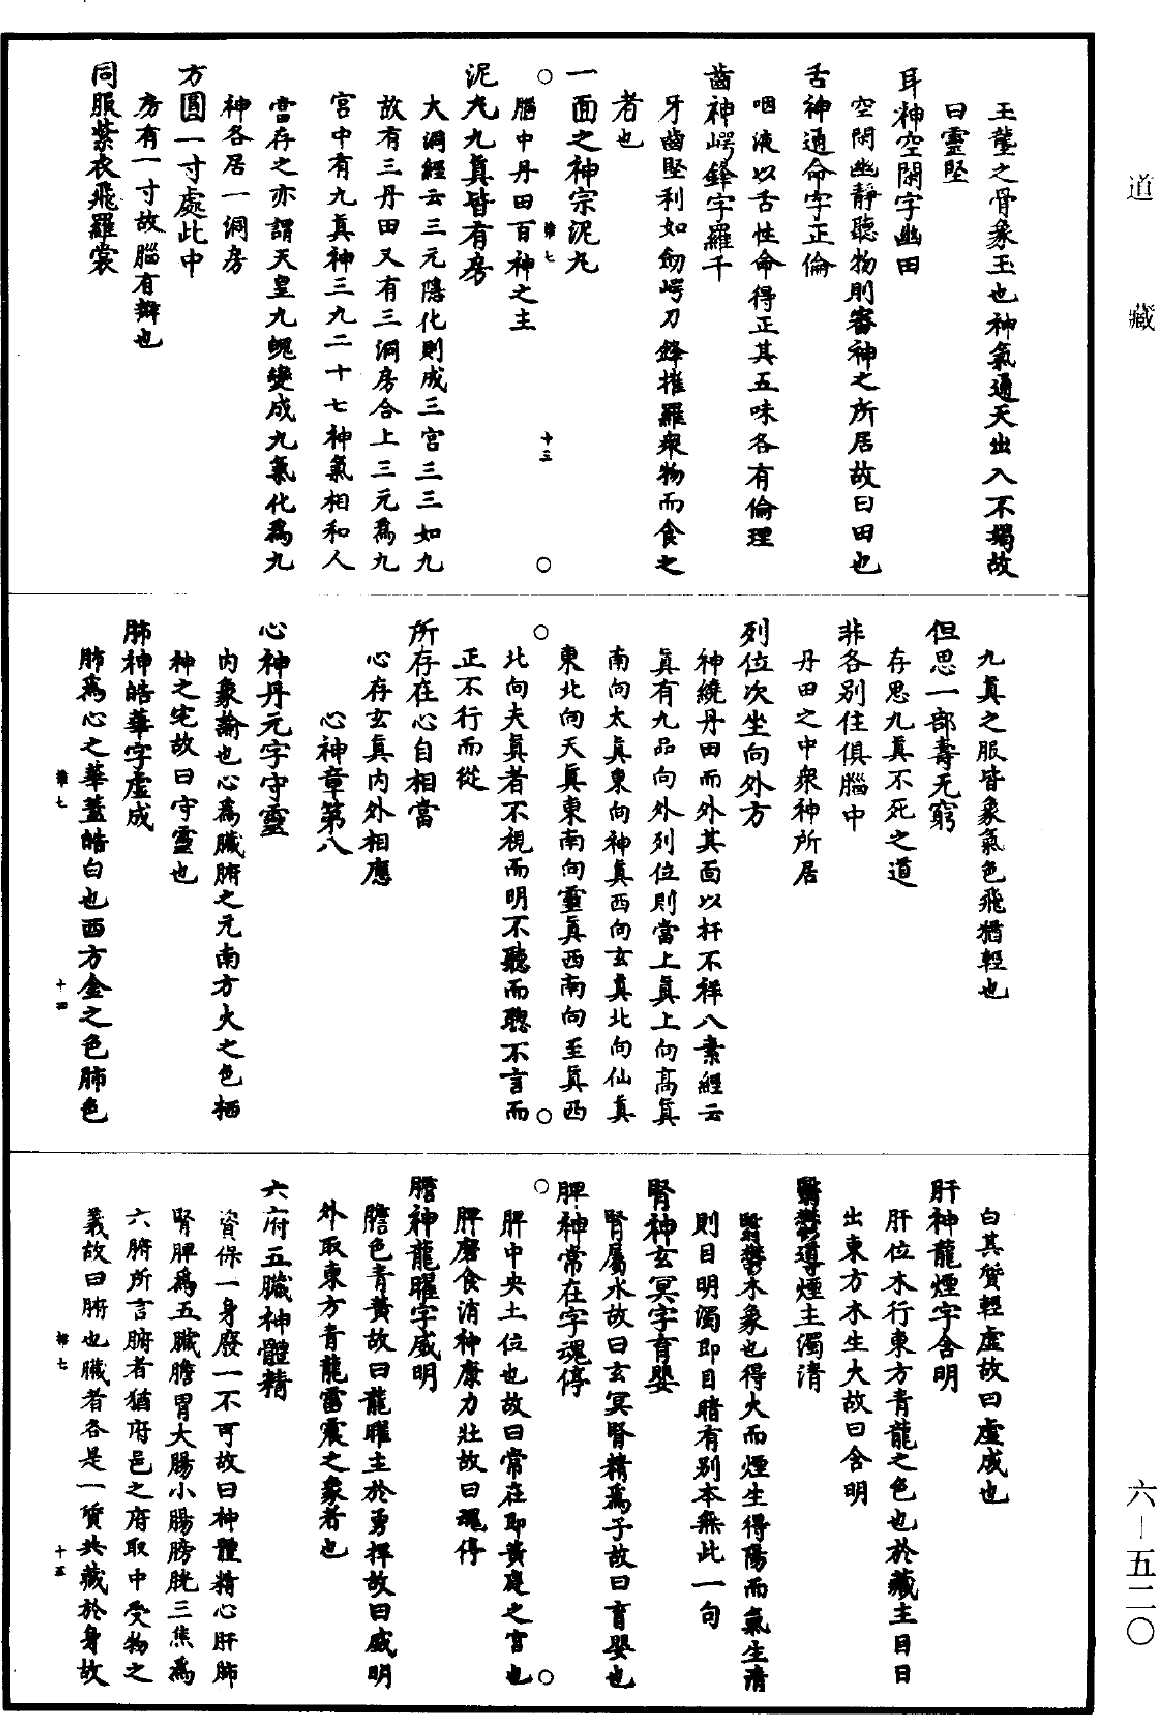 道藏
六—五二〇
玉壟之骨象玉也神氣通天出入不竭故
曰靈堅
耳神空閑字幽田
空閑幽靜聽物則審神之所居故曰田也
舌神通命字正倫
咽液以舌性命得正其五味各有倫理
齒神崿鋒字羅千
牙齒堅利如劒崿刀鋒摧羅衆物而食之
者也
一面之神宗泥丸
腦中丹田百神之主
泥丸九眞皆有房
大洞經云三元隱化則成三宮三三如九
故有三丹田又有三洞房合上三元爲九
宮中有九眞神三九二十七神氣相和人
當存之亦謂天皇九魄變成九氣化爲九
神各居一洞房
方圓一寸處此中
房有一寸故腦有瓣也
同服紫衣飛羅裳
九眞之服皆象氣色飛猶輕也
但思一部壽无窮
存思九眞不死之道
非各別住俱腦中
丹田之中衆神所居
列位次坐向外方
神繞丹田而外其面以扞不祥八素經云
眞有九品向外列位則當上眞上向高眞
南向太眞東向神眞西向玄眞北向仙眞
東北向天眞東南向靈眞西南向至眞西
北向夫眞者不視而明不聽而聰不言而
正不行而從
所存在心自相當
心存玄眞內外相應
心神章第八
心神丹元字守靈
內象諭也心爲臟腑之元南方火之色栖
神之宅故曰守靈也
肺神皓華字虛成
肺爲心之華蓋皓白也西方金之色肺色
白其質輕虛故曰虛成也
肝神龍煙字含明
肝位木行東方青龍之色也於藏主目日
出東方木生火故曰含明
翳鬱導煙主濁清
翳鬱木象也得火而煙生得陽而氣生清
則目明濁即目暗有別本無此一句
腎神玄冥字育嬰
腎屬水故曰玄冥腎精爲子故曰育嬰也
脾神常在字魂停
脾中央土位也故曰常在即黃庭之宮也
脾磨食消神康力壯故曰魂停
膽神龍曜字威明
膽色青黃故曰龍曜主於勇捍故曰威明
外取東方青龍雷震之象者也
六府五臟神體精
資保一身廢一不可故曰神體精心肝肺
腎脾爲五臟膽胃大腸小腸膀胱三焦爲
六腑所言腑者猶府邑之府取中受物之
義故曰腑也臟者各是一質共藏於身故